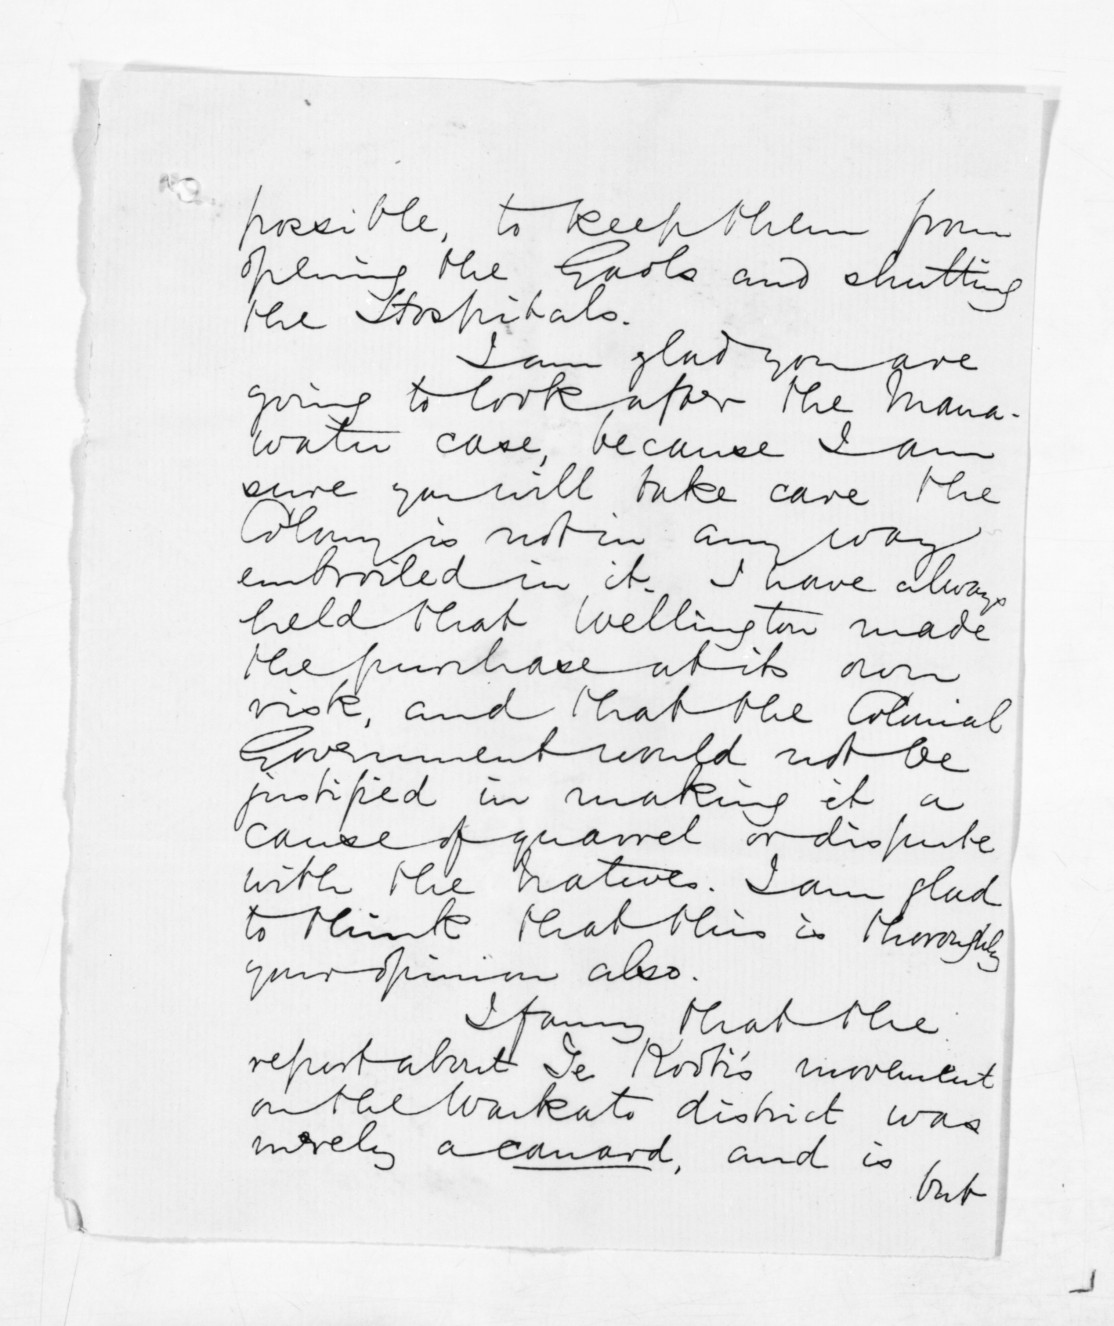 possible, to keep them from
opening the Gaols and shutting
the Hospitals.
I am glad you are
going to look after the Mana-
watu case, because I am
sure you will take care the
Colony is not in any way
embroiled in it. I have always
held that Wellington made
the purchase at its own
risk, and that the Colonial
Government would not be
justified in making it a
cause of quarrel or dispute
with the Natives. I am glad
to think that this is thoroughly
your opinion also.
I fancy that the
report about Te Kooti's movement
on the Waikato district was
merely a canard, and is
but